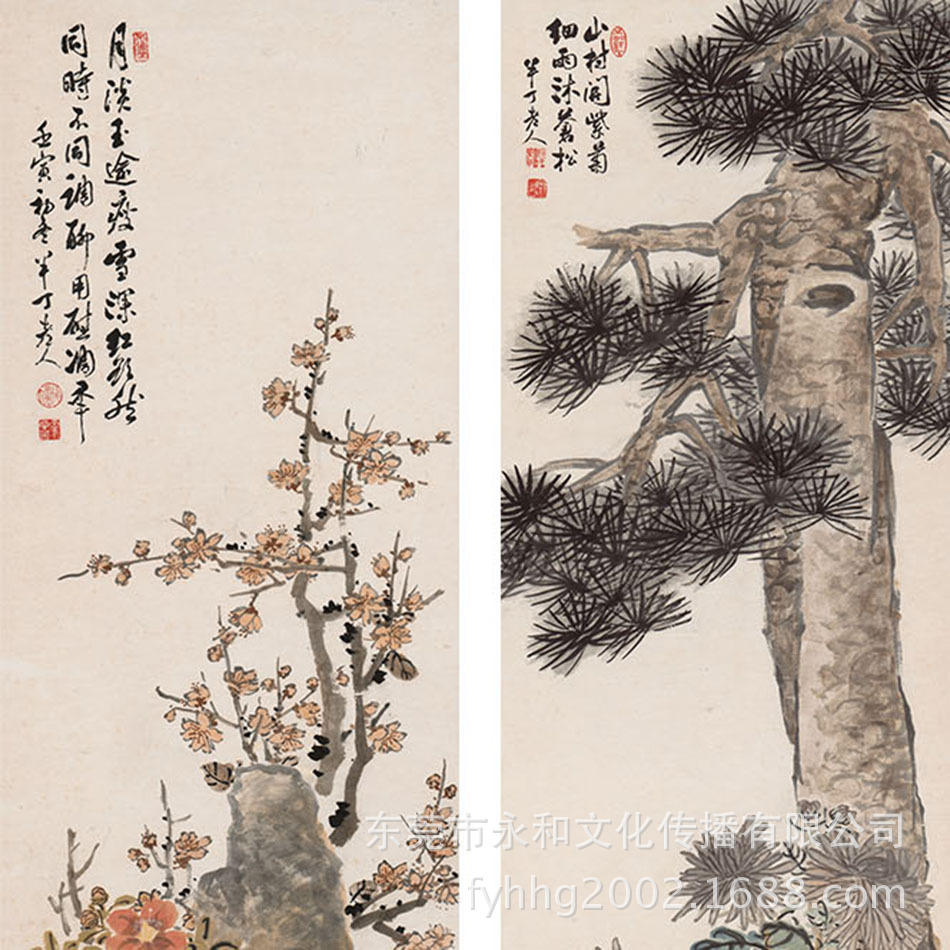 月淡玉逾瘦雪深红欲然
同時不同調聊用慰凋年
壬寅初冬半丁老人
山村開紫菊
細雨沐蒼松
半丁老人
东莞市永和文化传播有限公司
fyhhg2002.1688.com